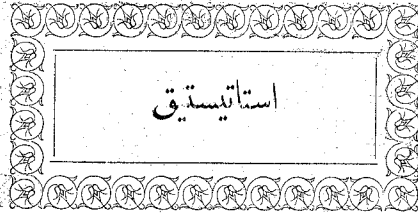 استاتيستيق